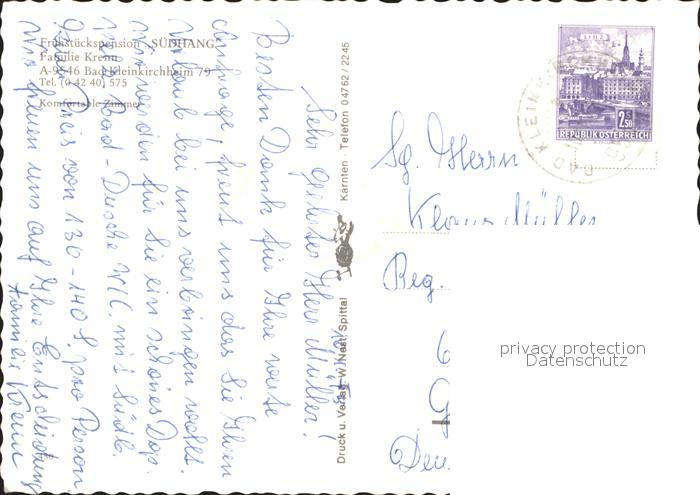 Frühstückspension „SÜDHANG“
Familie Krenn
A-9546 Bad Kleinkirchheim 79
Tel. (0 42 40) 575
Komfortable Zimmer
Sehr geehrter Herr Müller!
Besten Dank für Ihre werte
Anfrage, freut uns das Sie Ihren
Urlaub bei uns verbringen wollt.
Wir werden für Sie ein schönes Dop.
Bad - Dusche WC. mit Südb.
Preis von 130 - 140 S. pro Person
Wir freuen uns auf Ihre Entscheidung
Familie Krenn
Druck u. Verlag: W. Nest, Spittal
Kärnten · Telefon 0 47 62 / 22 45
LINZ
2.50
REPUBLIK ÖSTERREICH
BAD KLEINK
Sg. Herrn
Klaus Müller
Reg.
privacy protection
Datenschutz